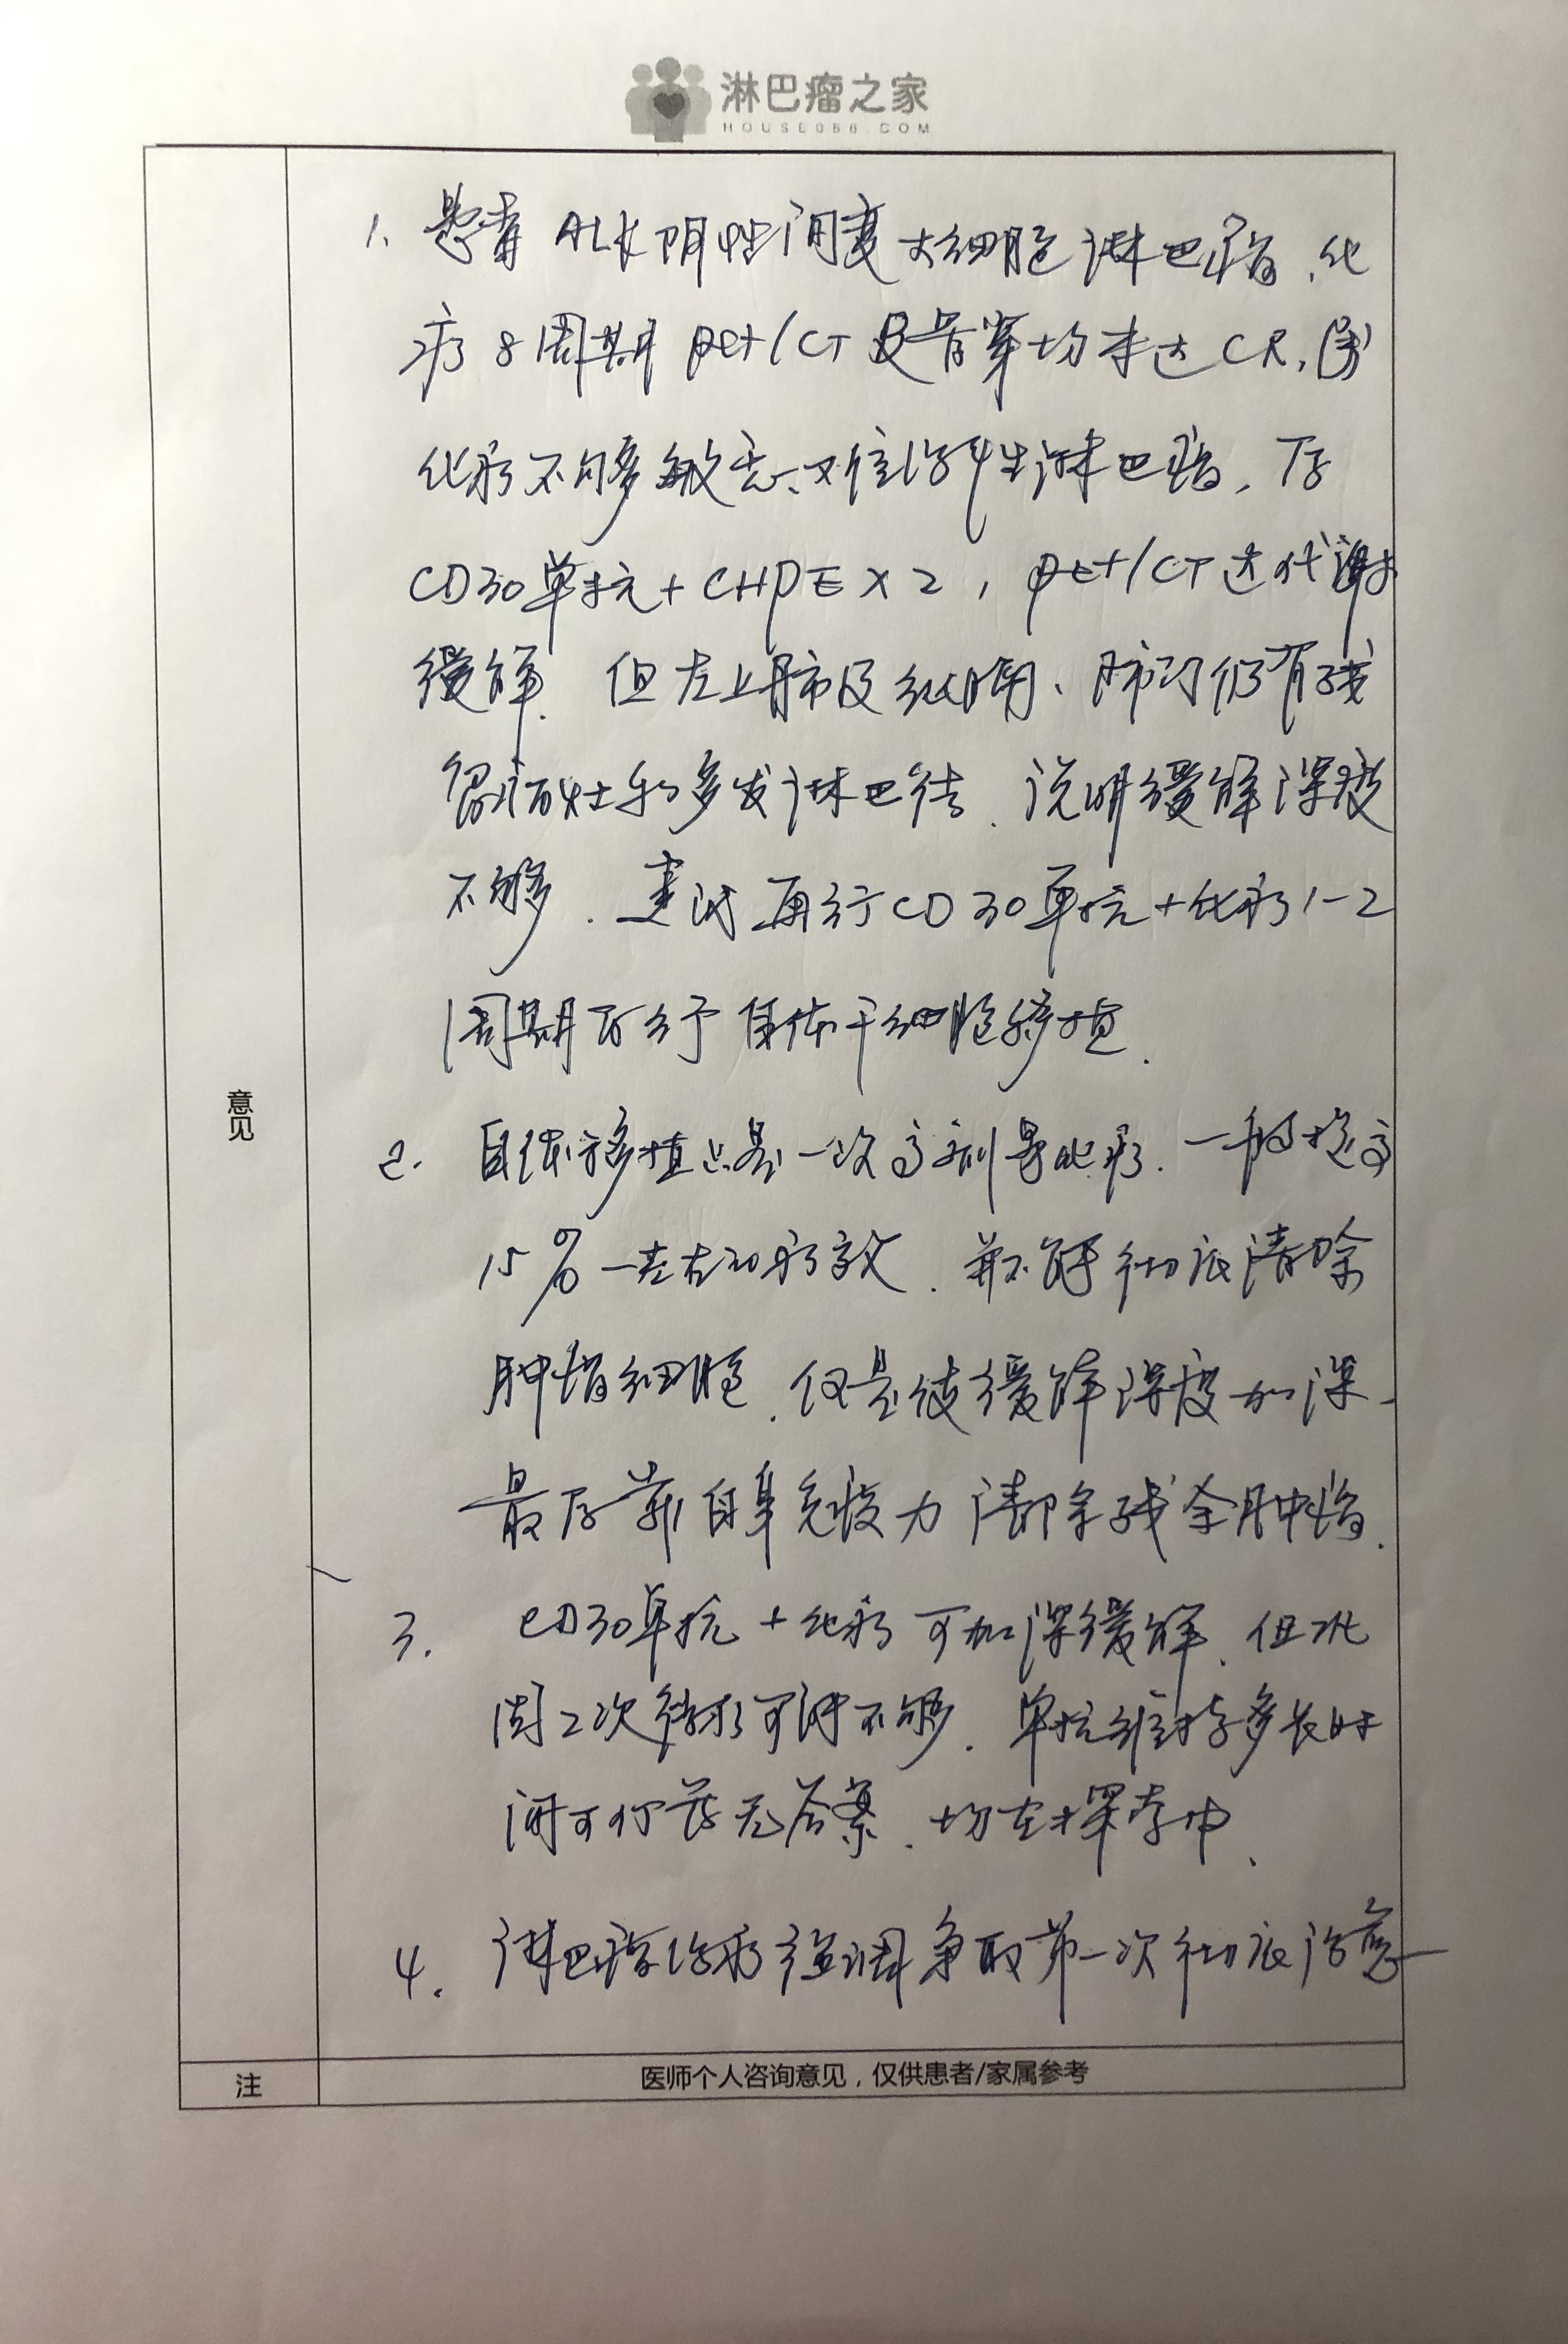 淋巴瘤之家
HOUSE086.COM
1. 患者ALK阴性间变大细胞淋巴瘤,化
疗8周期 pet/CT及骨穿均未达CR,属
化疗不够敏感、难治性淋巴瘤,后
CD30单抗+CHPE×2,pet/CT达代谢
缓解.但左上肺及纵膈、肺门仍有残
留病灶和多发淋巴结.说明缓解深度
不够.建议再行CD30单抗+化疗1-2
周期后行自体干细胞移植.
意见
2. 自体移植只是一次高剂量化疗.一般提高
15%左右的疗效.并不能彻底清除
肿瘤细胞.仅是使缓解深度加深.
最后靠自身免疫力清除残余肿瘤.
3. CD30单抗+化疗可加深缓解.但巩
固2次 可能不够.单抗维持多长时
间可行 无答案.均在探索中.
4. 淋巴瘤治疗强调争取第一次彻底治愈
注 医师个人咨询意见,仅供患者/家属参考